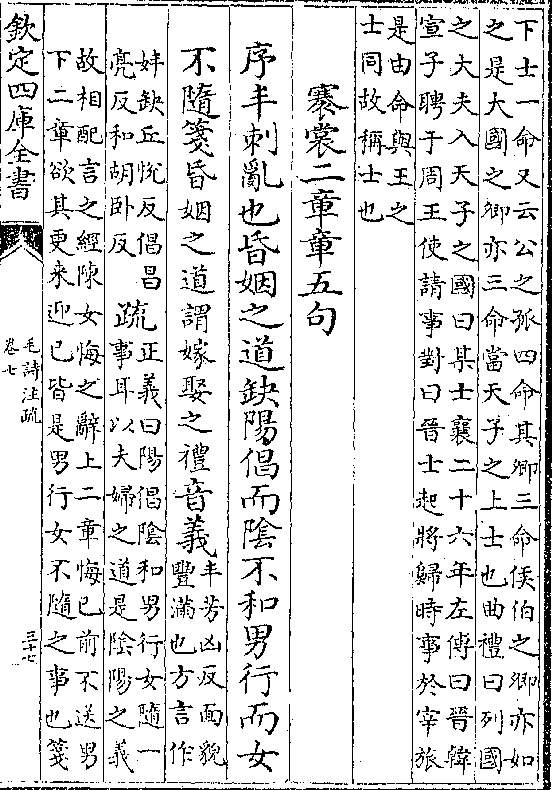 下士一命又云公之孤四命其卿三命侯伯之卿亦如
之是大國之卿亦三命當天子之上士也曲禮曰列國
之大夫入天子之國曰某士襄二十六年左傳曰晉韓
宣子聘于周王使請事對曰晉士起將歸時事於宰旅
是由命與王之
士同故稱士也
褰裳二章章五句
序丰刺亂也昏姻之道缺陽倡而陰不和男行而女
不隨箋昏姻之道謂嫁娶之禮音義丰芳凶反面貌
豐滿也方言作
妦缺丘悅反倡昌
亮反和胡卧反
疏正義曰陽倡陰和男行女隨一
事耳以夫婦之道是陰陽之義
故相配言之經陳女悔之辭上二章悔已前不送男
下二章欲其更來迎已皆是男行女不隨之事也箋
欽定四庫全書
毛詩注疏
卷七
三十七